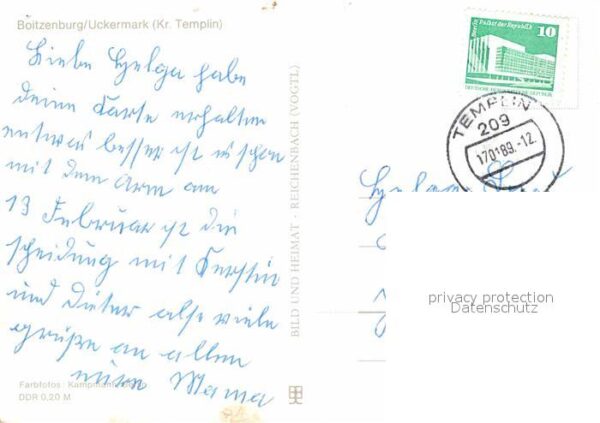 Boitzenburg/Uckermark (Kr. Templin)
Liebe Helga habe
deine Karte erhalten
entwas besser ist es schon
mit dem Arm am
13 Februar ist die
scheidung mit Kerstin
und Dieter also viele
grüße an allen
Mama
Farbfotos: Kampmann
DDR 0,20 M
BILD UND HEIMAT · REICHENBACH (VOGTL)
Berlin, Palast der Republik
10
DEUTSCHE DEMOKRATISCHE REPUBLIK
TEMPLIN
209
170189.-12
privacy protection
Datenschutz